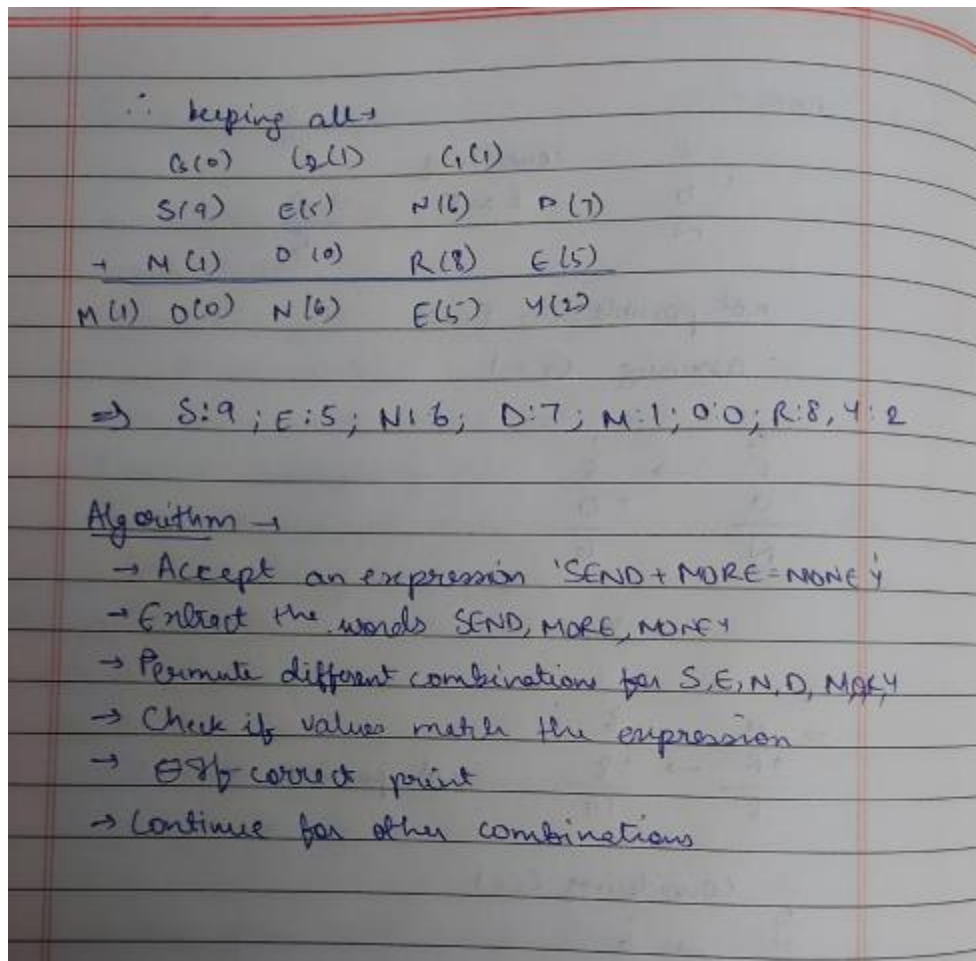 ∴ keeping all →
C3(0) C2(1) C1(1)
S(9) E(5) N(6) D(7)
+ M(1) O(0) R(8) E(5)
M(1) O(0) N(6) E(5) Y(2)
⇒ S:9; E:5; N:6; D:7; M:1; O:0; R:8, Y:2
Algorithm →
→ Accept an expression 'SEND + MORE = MONEY'
→ Extract the words SEND, MORE, MONEY
→ Permute different combinations for S,E,N,D, M,O,R,Y
→ Check if values match the expression
→ If correct print
→ Continue for other combinations